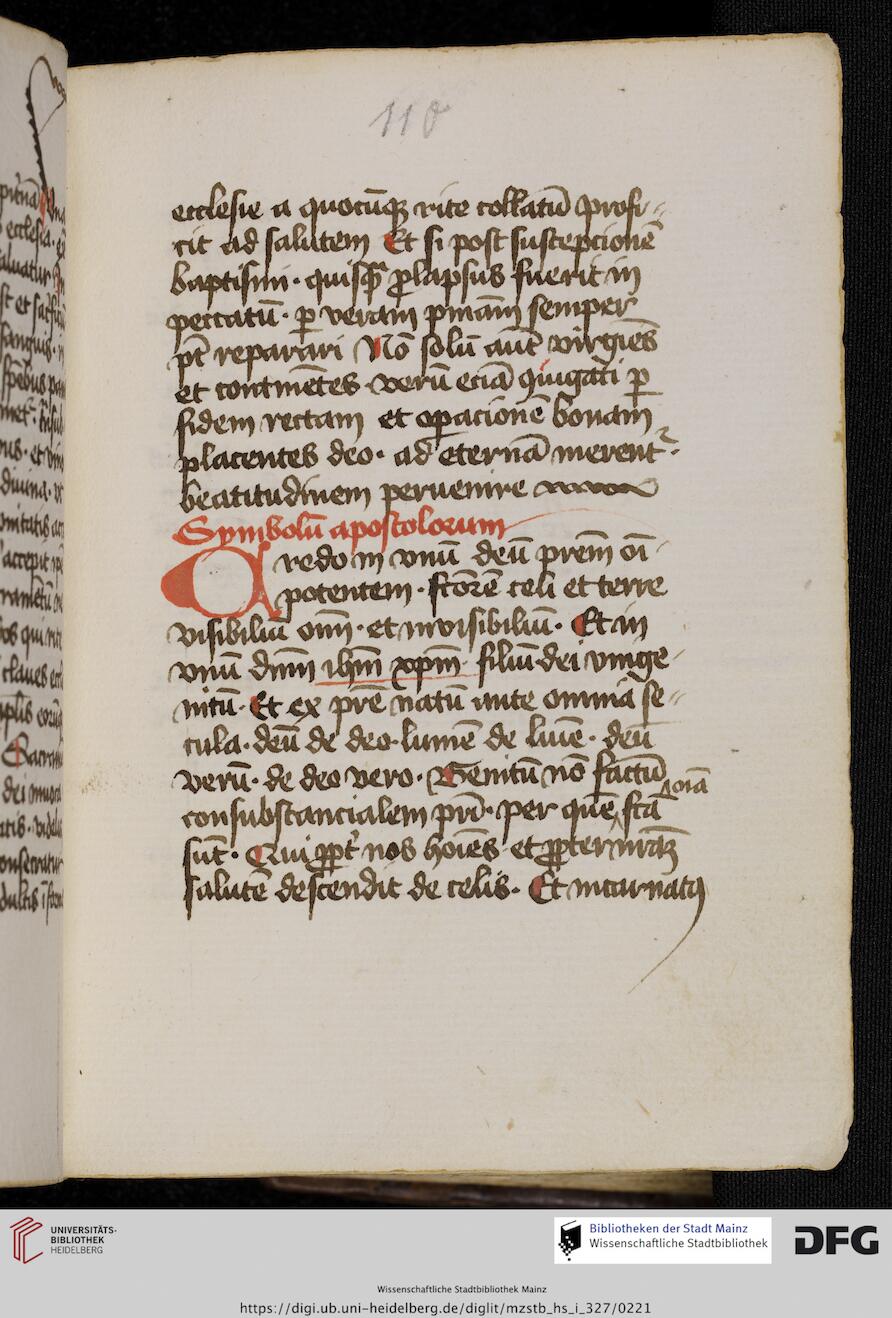 110
ecclesie a quocūqꝫ rite collatū profi-
cit ad salutem Et si post suscepcionē
baptismi · quisqᵃ̄ ꝓlapsus fuerit in
peccatū · ꝑ veram pniām semper
pt̄ reparari Nō solū aut̄ virgiēs
et continētes · verū eciā ꝯiugati ꝑ
fidem rectam et oꝑacionē bonam
placentes deo · ad eternā merent᷑ ·
beatitudinem peruenire
Symbolū apostolorum
Credo in vnū deū prēm oī
potentem · fc̄orē celi et terre
visibiliū om̄ · et invisibiliū · Et in
vnū dnm̄ ihm̄ xpm̄ · filiū dei vnige-
nitū · Et ex prē natū ante omnia se-
cula · deū de deo · lumē de luīe · deū
verū · de deo vero · Genitū nō factū
consubstancialem pri̅ · per quē oīa fc̄a
sūt · Qui ꝓpt᷑ nos hoīes · et ꝓpter nrām
salutē descendit de celis · Et incarnatꝰ
UNIVERSITÄTS-
BIBLIOTHEK
HEIDELBERG
Bibliotheken der Stadt Mainz
Wissenschaftliche Stadtbibliothek
DFG
Wissenschaftliche Stadtbibliothek Mainz
https://digi.ub.uni-heidelberg.de/diglit/mzstb_hs_i_327/0221